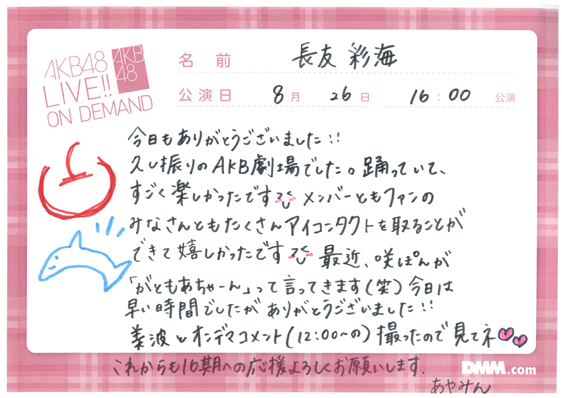 AKB48
LIVE!!
ON DEMAND
AKB
48
名前 長友 彩海
公演日 8月 26日 16:00 公演
今日もありがとうございました!!
久し振りのAKB劇場でした。踊っていて、
すごく楽しかったです メンバーともファンの
みなさんともたくさんアイコンタクトを取ることが
できて嬉しかったです 最近、咲ぽんが
「がともあちゃーん」って言ってきます(笑)今日は
早い時間でしたがありがとうございました!!
美波とオンデマコメント(12:00〜の)撮ったので見てネ
これからも16期への応援よろしくお願いします.
DMM.com
あやみん